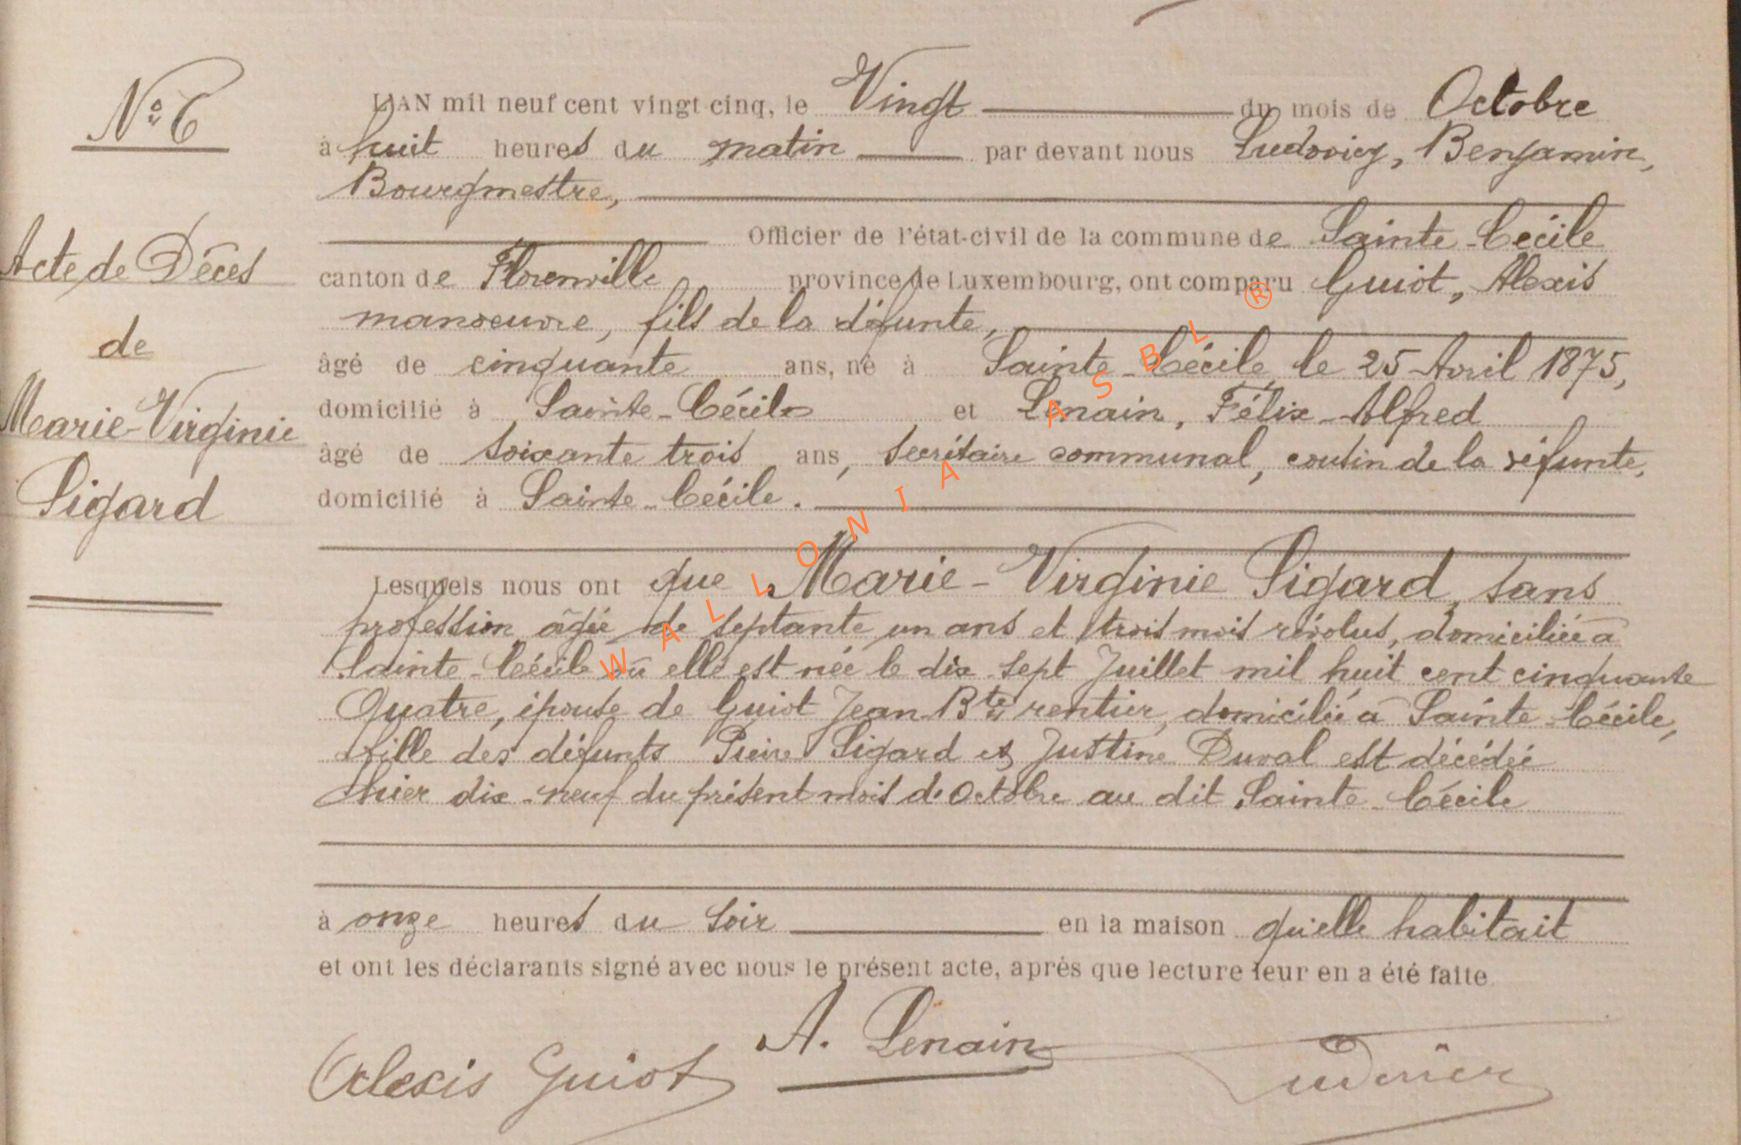 N° 6
Acte de Décès
de
Marie-Virginie
Sigard
L'AN mil neuf cent vingt cinq, le Vingt du mois de Octobre
à huit heures du matin par devant nous Ludovicy, Benjamin,
Bourgmestre,
Officier de l'état-civil de la commune de Sainte-Cécile
canton de Florenville province de Luxembourg, ont comparu Guiot, Alexis
manoeuvre, fils de la défunte,
âgé de cinquante ans, né à Sainte-Cécile, le 25 Avril 1875,
domicilié à Sainte-Cécile et Lenain, Félix-Alfred
âgé de soixante trois ans, secrétaire communal, cousin de la défunte,
domicilié à Sainte-Cécile.
Lesquels nous ont que Marie-Virginie Sigard, sans
profession âgée de septante un ans et trois mois révolus, domiciliée à
Sainte-Cécile où elle est née le dix-sept Juillet mil huit cent cinquante
Quatre, épouse de Guiot Jean Bte rentier, domiciliée à Sainte-Cécile,
fille des défunts Pierre Sigard et Justine Duval est décédée
hier dix-neuf du présent mois d'Octobre au dit Sainte-Cécile
à onze heures du soir en la maison qu'elle habitait
et ont les déclarants signé avec nous le présent acte, après que lecture leur en a été faite
Alexis Guiot A. Lenain Ludovicy
WALLONIA ASBL ®